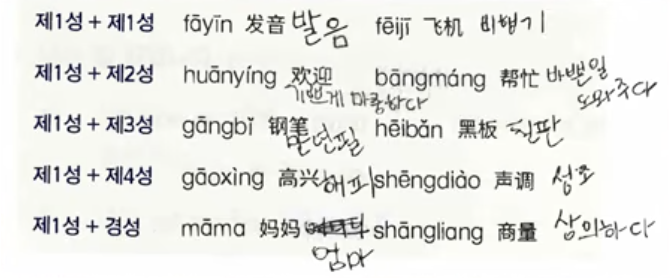 제1성 + 제1성 fāyīn 发音 발음 fēijī 飞机 비행기
제1성 + 제2성 huānyíng 欢迎 기쁘게 마중하다 bāngmáng 帮忙 바쁜일 도와주다
제1성 + 제3성 gāngbǐ 钢笔 만년필 hēibǎn 黑板 칠판
제1성 + 제4성 gāoxìng 高兴 해피 shēngdiào 声调 성조
제1성 + 경성 māma 妈妈 엄마 shāngliang 商量 상의하다